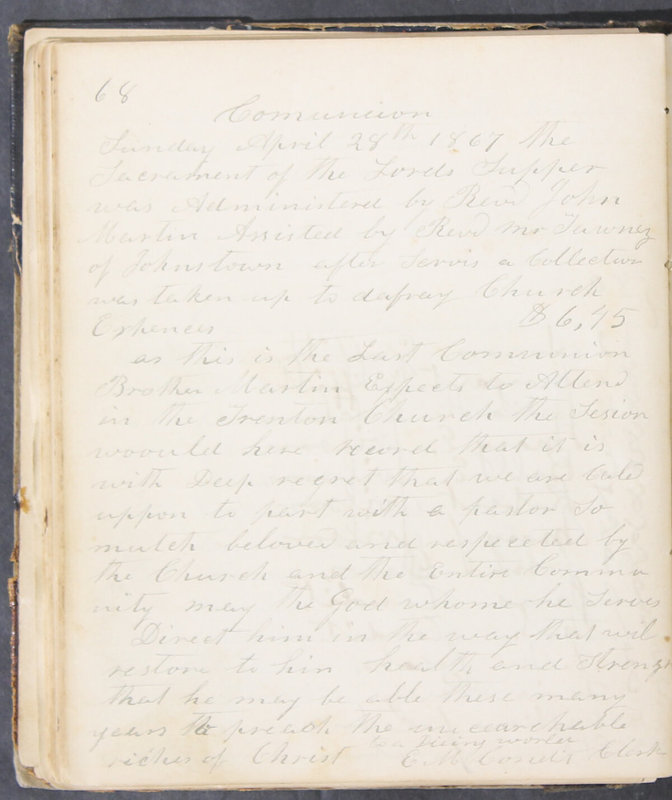 68
Comuncion
Sunday April 28th 1867 the
Sacrament of the Lords Supper
was Administered by Revd John
Martin Assisted by Revd Mr
of Johnstown after servis a Collection
was taken up to defray Church
Expences $6,45
as this is the Last Communion
Brother Martin Expects to Attend
in the Trenton Church the Sesion
woould here record that it is
with Deep regret that we are
uppon to part with a pastor so
mutch beloved and respected by
the Church and the Entire Commu
nity may the God whome he Serves
Direct him in the way that wil
restore to him health and Strengt
that he may be able these many
years to preach the
riches of Christ to a dieing world
Clerk